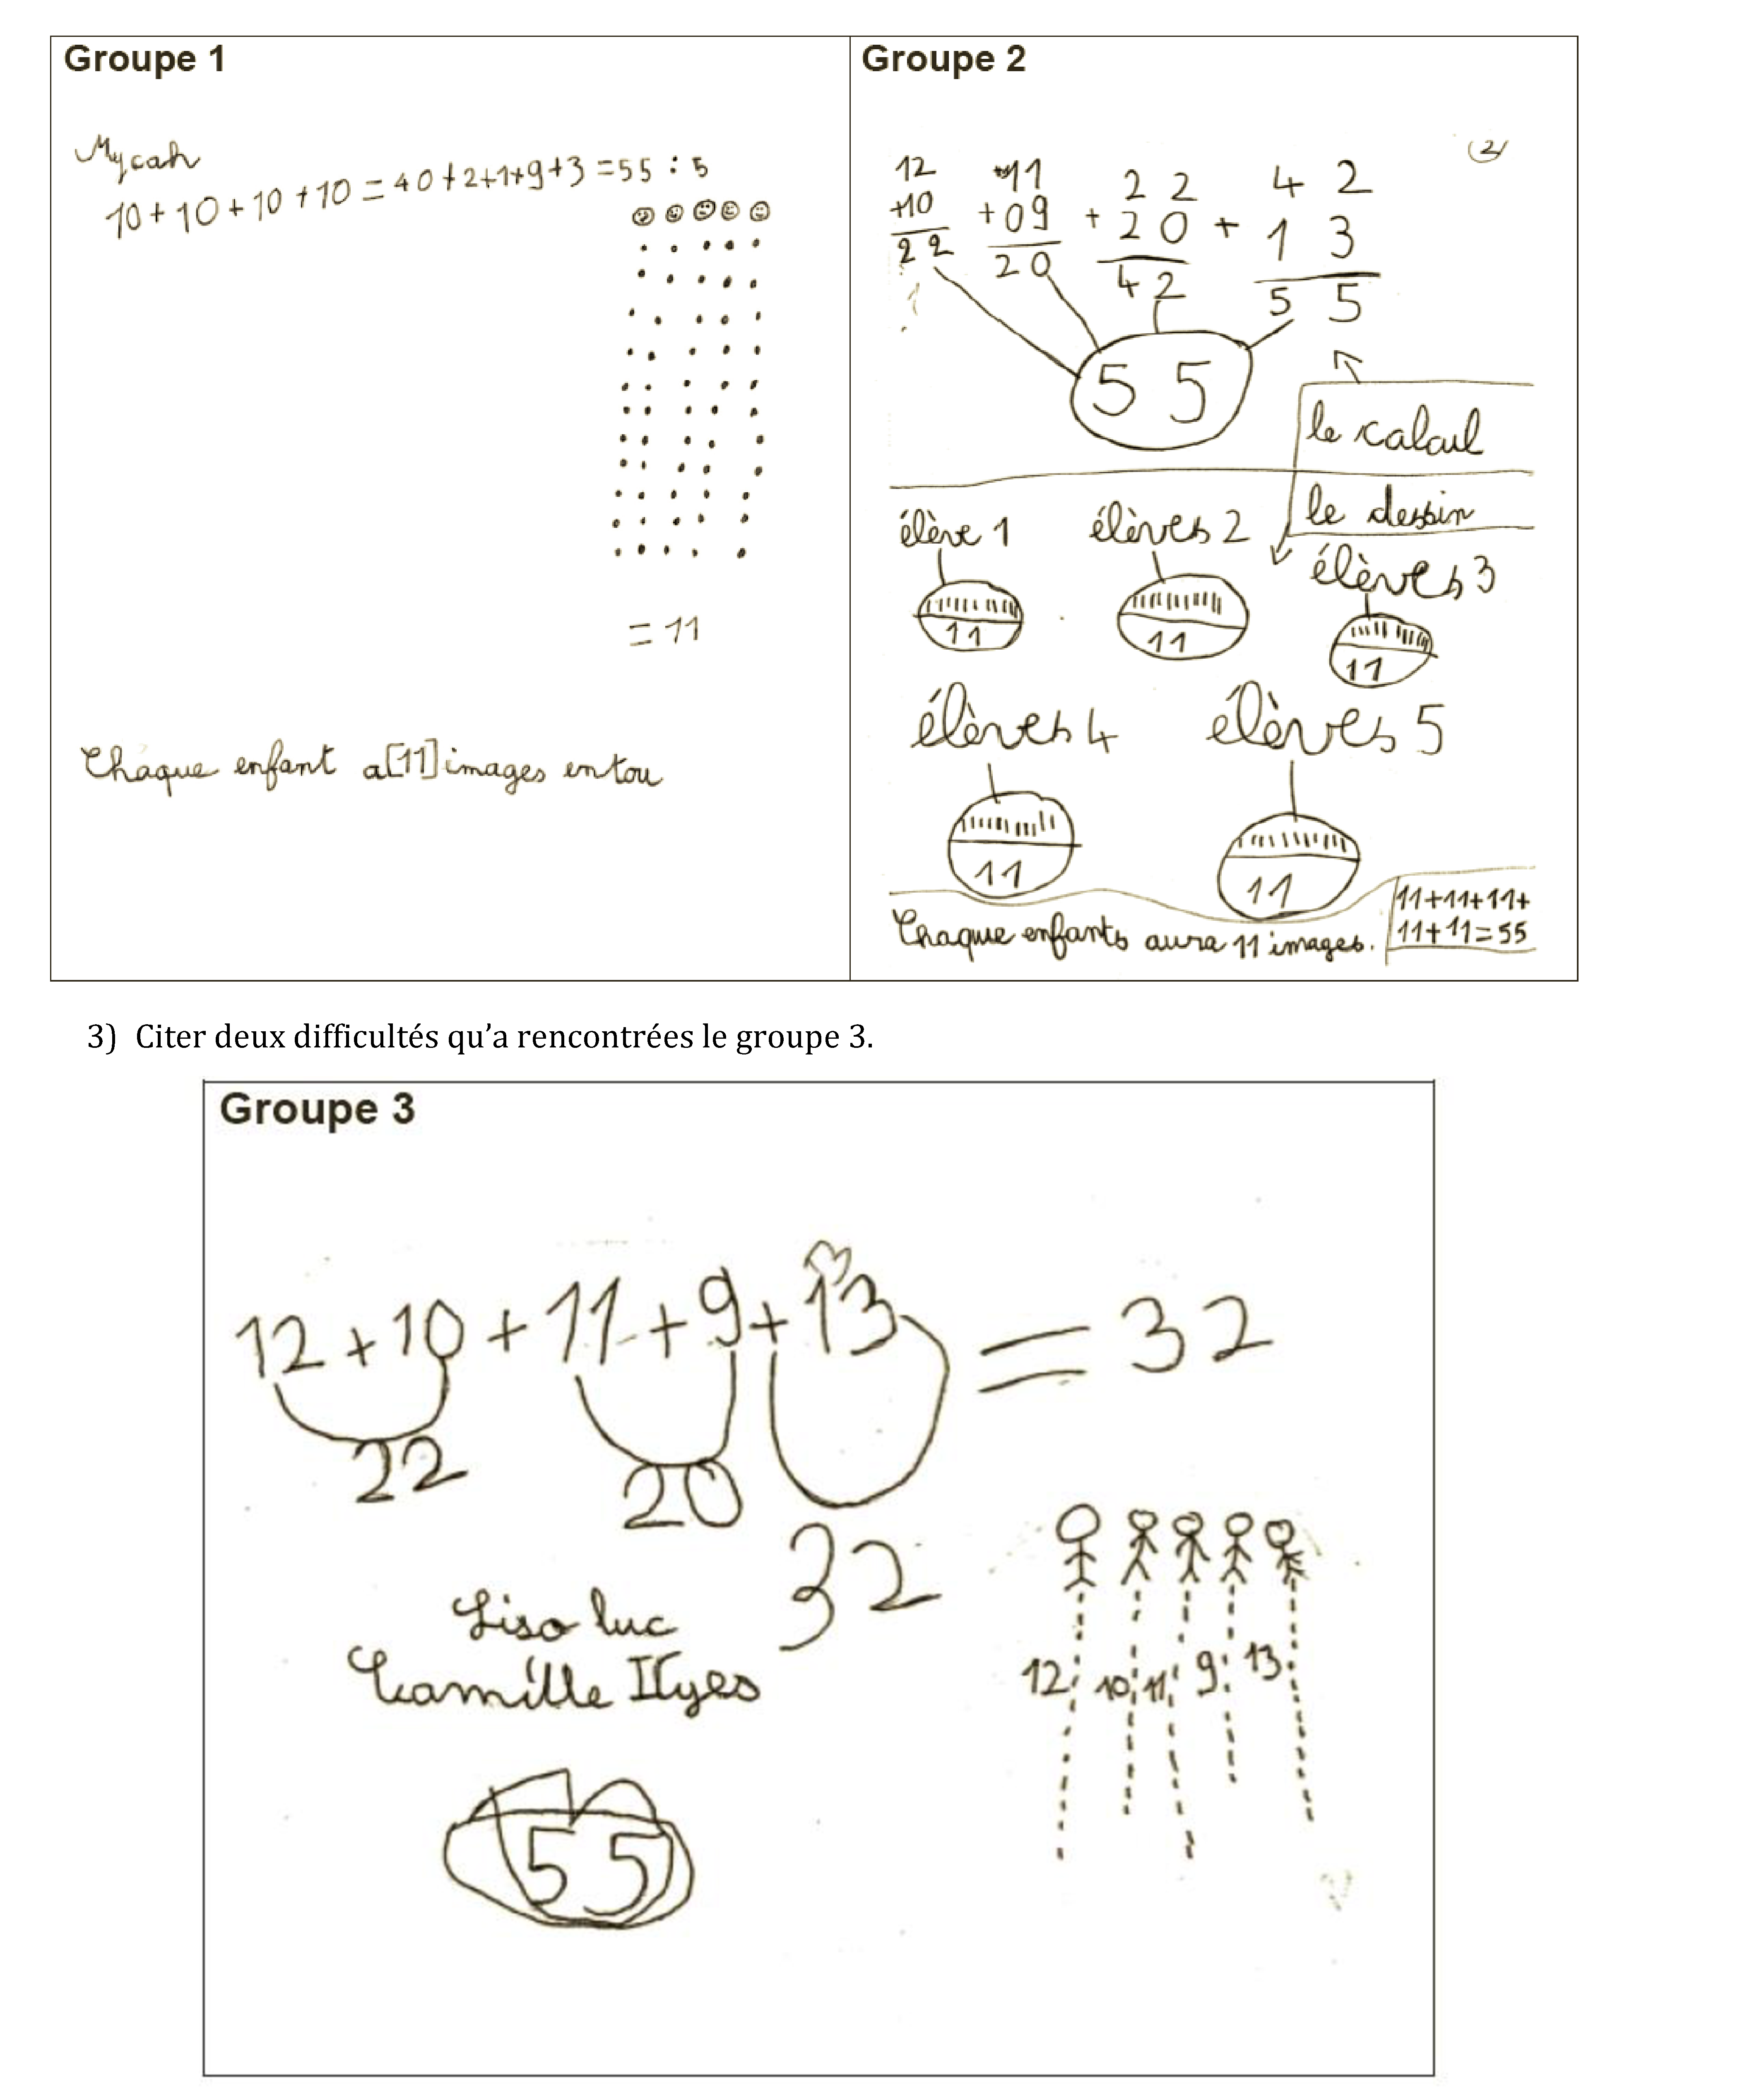 Groupe 1
Mycah
10+10+10+10=40+2+1+9+3=55:5
=11
Chaque enfant a[11]images entou
Groupe 2
2
12 11 22 42
+10 +09 +20 +13
22 20 42 55
55
le calcul
le dessin
élève 1 élèves 2
élèves 3
11 11 11
élèves 4 élèves 5
11 11
11+11+11+
11+11=55
Chaque enfants aura 11 images.
3) Citer deux difficultés qu'a rencontrées le groupe 3.
Groupe 3
12+10+11+9+13=32
22
20
32
luc
Camille Ilyes
12 10 11 9 13
55